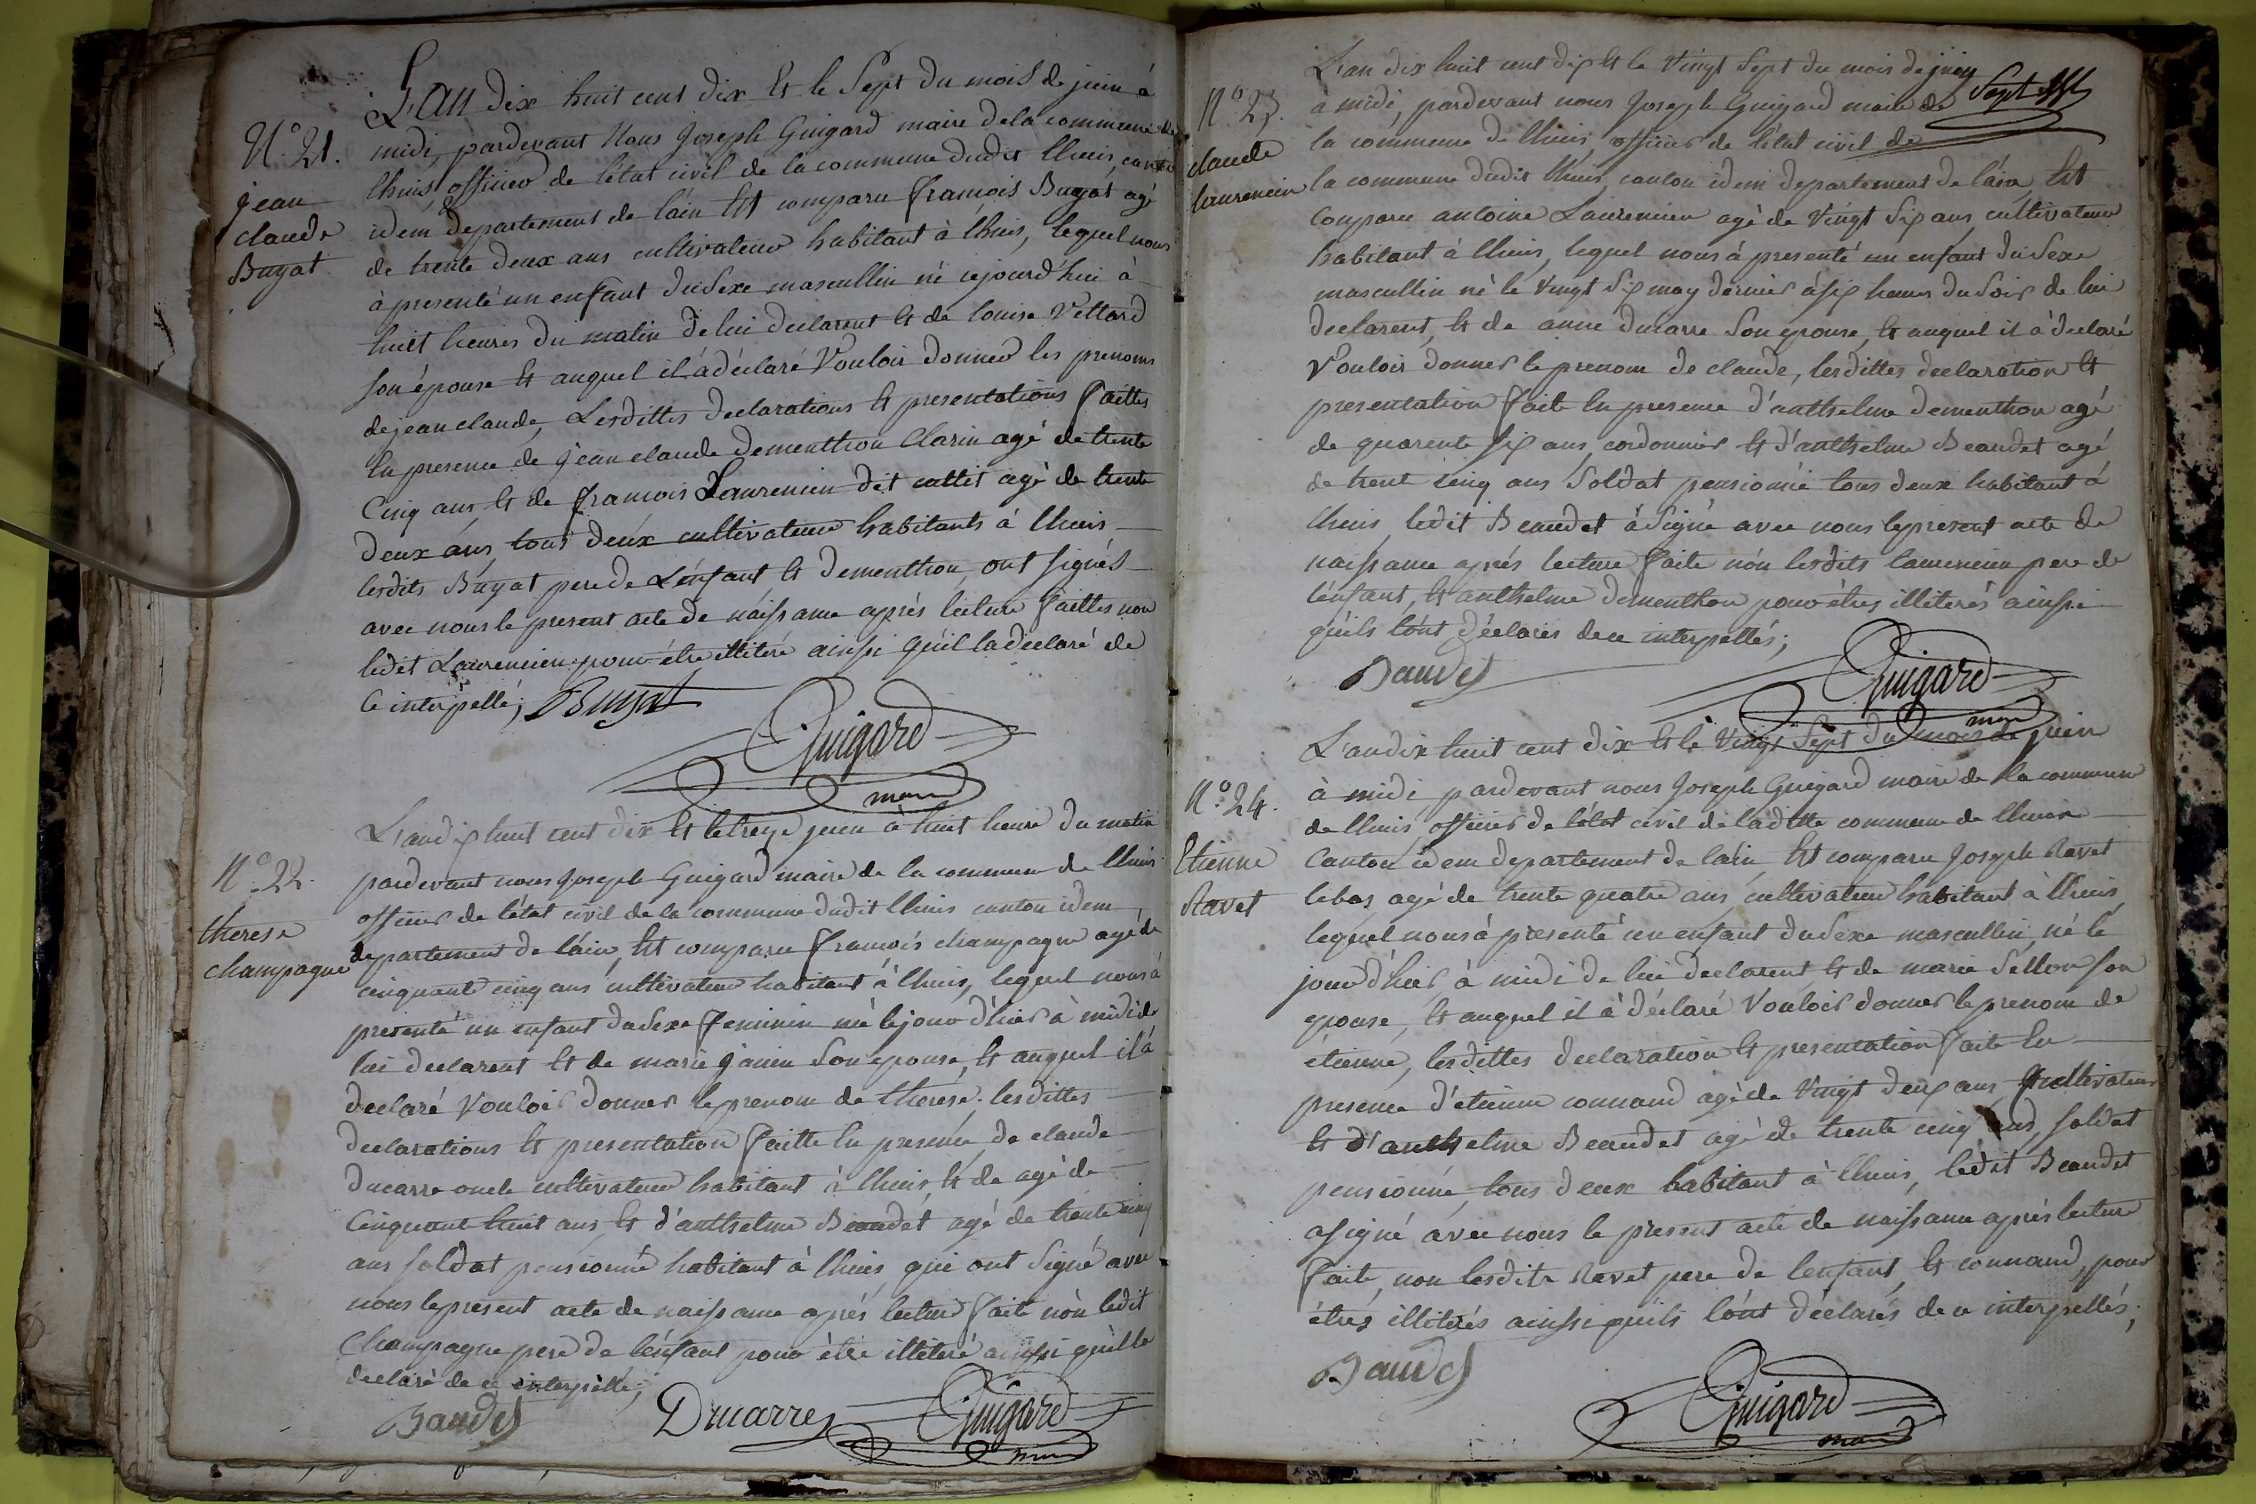 N.° 21.
jean
claude
Buyat
L'an dix huit cent dix et le sept du mois de juin à
midi, pardevant nous Joseph Guigard maire de la commune de
lhuis, officier de l'état civil de la commune dudit lhuis, canton
idem departement de l'ain Est comparu françois Buyat agé
de trente deux ans cultivateur habitant à lhuis, lequel nous
à presenté un enfant du sexe mascullin né cejourd'hui à
huit heures du matin de lui declarent et de louise Vettard
son épouse et auquel il à déclaré Vouloir donner les prenoms
de jean claude, Lesdittes declarations et presentations faittes
En presence de jean claude dementhon Clarin agé de trente
Cinq ans et de françois Laurencin dit cattit agé de trente
deux ans, tous deux cultivateur habitants à lhuis
lesdits Buyat pere de L'enfant et dementhon, ont signés
avec nous le present acte de naissance après lecture faittes non
ledit Laurencin pour être illiteré ainsi qu'il la declaré de
Ce interpellé; Buyat
Guigard
maire
N.° 22.
therese
champagne
L'an dix huit cent dix et le treze juin à huit heure du matin
pardevant nous Joseph Guigard maire de la commune de lhuis
officier de l'état civil de la commune dudit lhuis canton idem
departement de l'ain, Est comparu françois champagne agé de
cinquante cinq ans cultivateur habitant à lhuis, lequel nous à
presenté un enfant du sexe feminin né le jour d'hier à midi de
lui declarent et de marie janin son epouse, et auquel il à
declaré Vouloir donner le prenom de therese. lesdittes
declarations et presentation faitte En presence, de claude
Ducarre oncle cultivateur habitant à lhuis, et de agé de
Cinquant huit ans, et d'anthelme Beaudet agé de trente cinq
ans soldat pensionné habitant à lhuis, qui ont signé avec
nous le present acte de naissance après lecture faite non ledit
Champagne pere de l'enfant pour être illiteré ainssi qu'il le
declaré de ce interpellé;
Baudet Ducarre Guigard
maire
N.° 23.
claude
laurencin
L'an dix huit cent dix et le Vingt Sept du mois de juin
à midi, pardevant nous Joseph Guigard maire de
la commune de lhuis, officier de l'état civil de
la commune dudit lhuis, canton idem departement de l'ain, Est
Comparu antoine Laurencin agé de Vingt Six ans, cultivateur
habitant à lhuis, lequel nous à presenté un enfant du sexe
mascullin né le Vingt Six may dernier à six heures du soir de lui
declarent, et de anne ducarre son epouse, et auquel il à declaré
Vouloir donner le prenom de claude, lesdittes declaration et
presentation faite En presence d'anthelme dementhon agé
de quarente six ans, cordonnier et d'anthelme Beaudet agé
de trent cinq ans soldat pensionné tous deux habitant à
lhuis, ledit Beaudet à signé avec nous le present acte de
naissance après lecture faite non lesdits laurencin pere de
l'enfant, et anthelme dementhon pour êtres illiterés ainssi
qu'ils l'ont déclarés de ce interpellés;
Baudet Guigard
maire
N.° 24.
Etienne
Ravet
L'an dix huit cent dix et le Vingt Sept du mois de juin
à midi pardevant nous Joseph Guigard maire de la commune
de lhuis officier de l'état civil de laditte commune de lhuis
Canton idem departement de l'ain, Est comparu Joseph Ravet
lebas agé de trente quatre ans, cultivateur habitant à lhuis,
lequel nous à presenté un enfant du sexe mascullin, né le
jour d'hier à midi de lui declarent et de marie Sellon son
epouse, et auquel il à déclaré Vouloir donner le prenom de
étienne, lesdittes declaration et presentation faite En
presence d'etienne connand agé de Vingt deux ans, cultivateur
et d'anthelme Beaudet agé de trente cinq ans, soldat
pensionné, tous deux habitant à lhuis, ledit Beaudet
à signé avec nous le present acte de naissance après lecture
faite, non lesdits Ravet pere de l'enfant, et connand, pour
êtres illiterés ainssi quils l'ont déclarés de ce interpellés;
Baudet
Guigard
maire